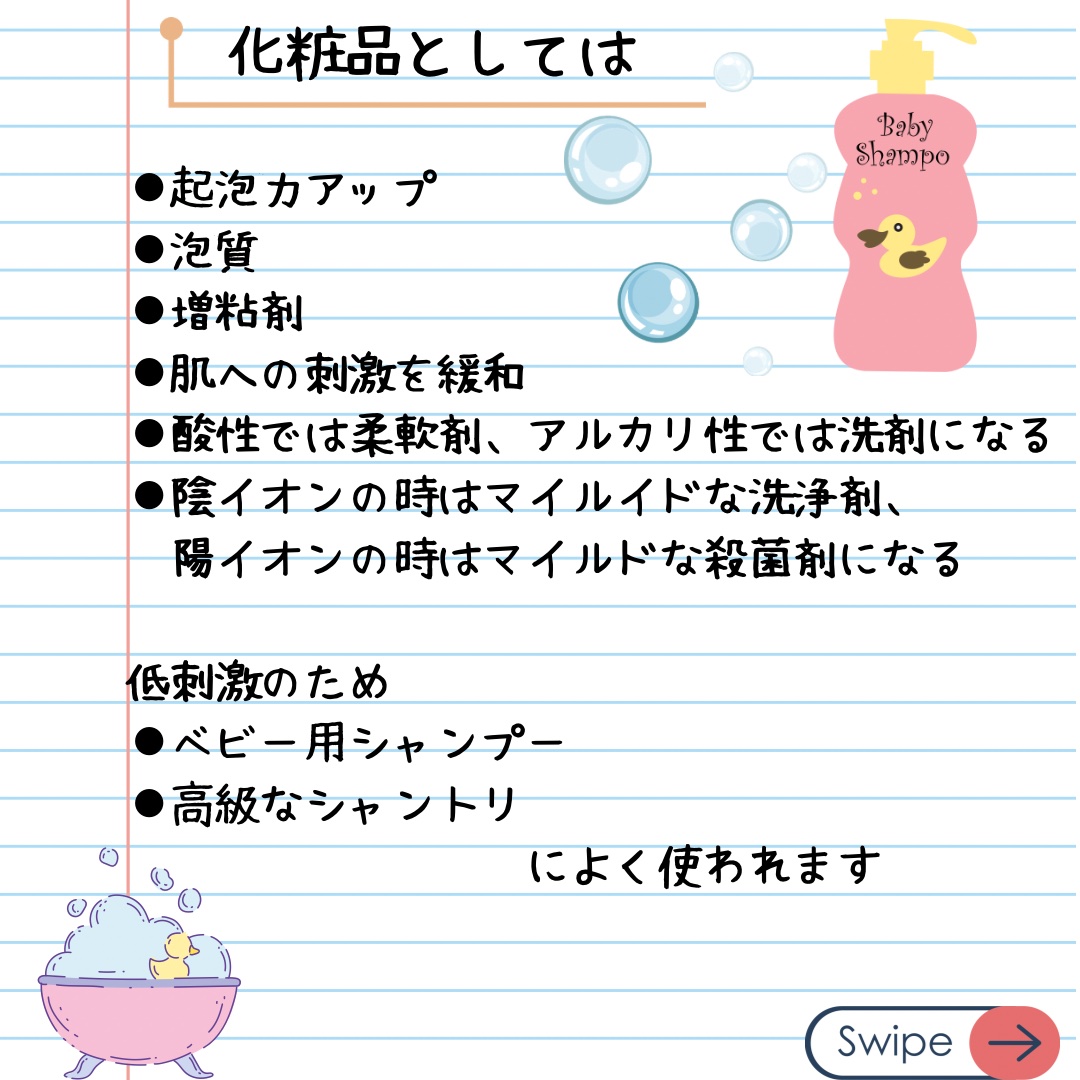 化粧品としては
Baby
Shampo
●起泡力アップ
●泡質
●増粘剤
●肌への刺激を緩和
●酸性では柔軟剤、アルカリ性では洗剤になる
●陰イオンの時はマイルイドな洗浄剤、
陽イオンの時はマイルドな殺菌剤になる
低刺激のため
●ベビー用シャンプー
●高級なシャントリ
によく使われます
Swipe